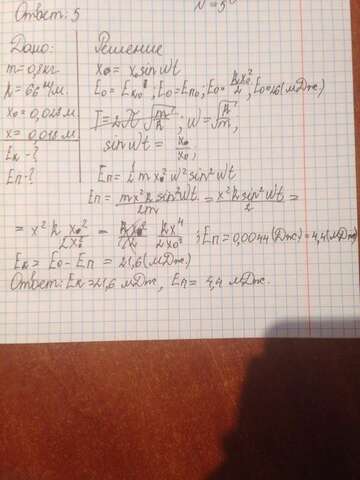 Ответ: 5
N = 5
Дано:
Решение
m = 0,8 кг
k = 66 н/м.
x₀ = 0,028 м
x = 0,018 м
Eк - ?
Eп - ?
x = x₀ sin Wt
E₀ = Eк₀; E₀ = Eп₀; E₀ = kx₀²/2; E₀ = 26 (мДж).
T = 2π √m/k; w = √k/m,
sin wt = x/x₀;
Eп = 1/2 m x₀² w² sin² wt
Eп = mx² k sin² wt/2m = x² k sin² wt/2 =
= x² k x²/2x₀² = kx⁴/2x₀²; Eп = 0,0044 (Дж) = 4,4 (мДж)
Eк = E₀ - Eп = 21,6 (мДж)
Ответ: Eк = 21,6 мДж, Eп = 4,4 мДж.